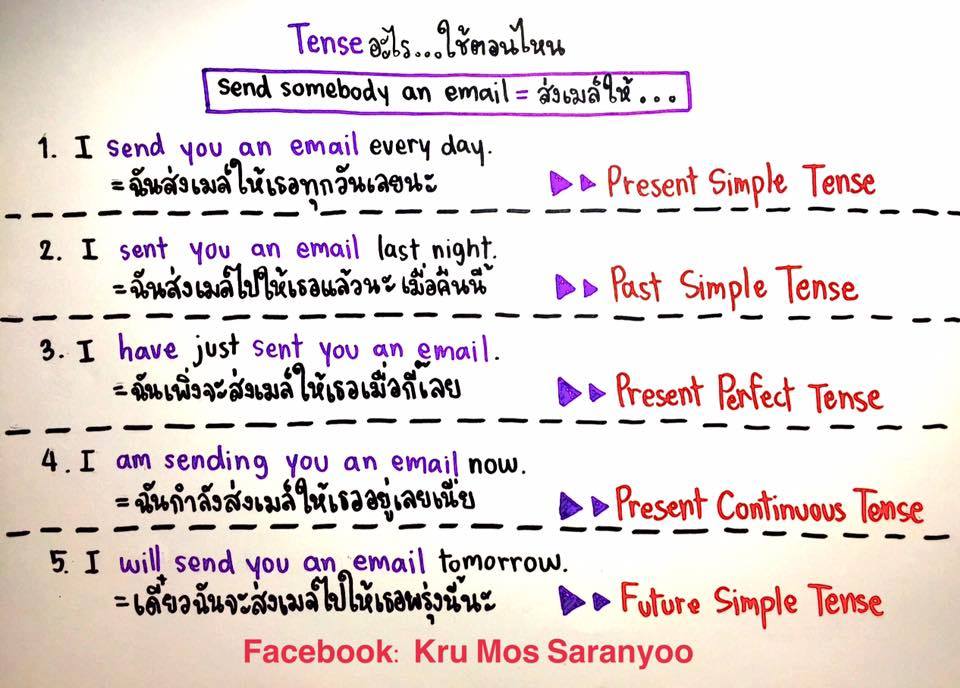 Tense อะไร...ใช้ตอนไหน
send somebody an email = ส่งเมล์ให้...
1. I send you an email every day.
=ฉันส่งเมล์ให้เธอทุกวันเลยนะ
Present Simple Tense
2. I sent you an email last night.
=ฉันส่งเมล์ไปให้เธอแล้วนะ เมื่อคืนนี้
Past Simple Tense
3. I have just sent you an email.
=ฉันเพิ่งจะส่งเมล์ให้เธอเมื่อกี้เลย
Present Perfect Tense
4. I am sending you an email now.
=ฉันกำลังส่งเมล์ให้เธออยู่เลยเนี่ย
Present Continuous Tense
5. I will send you an email tomorrow.
=เดี๋ยวฉันจะส่งเมล์ไปให้เธอพรุ่งนี้นะ
Future Simple Tense
Facebook: Kru Mos Saranyoo